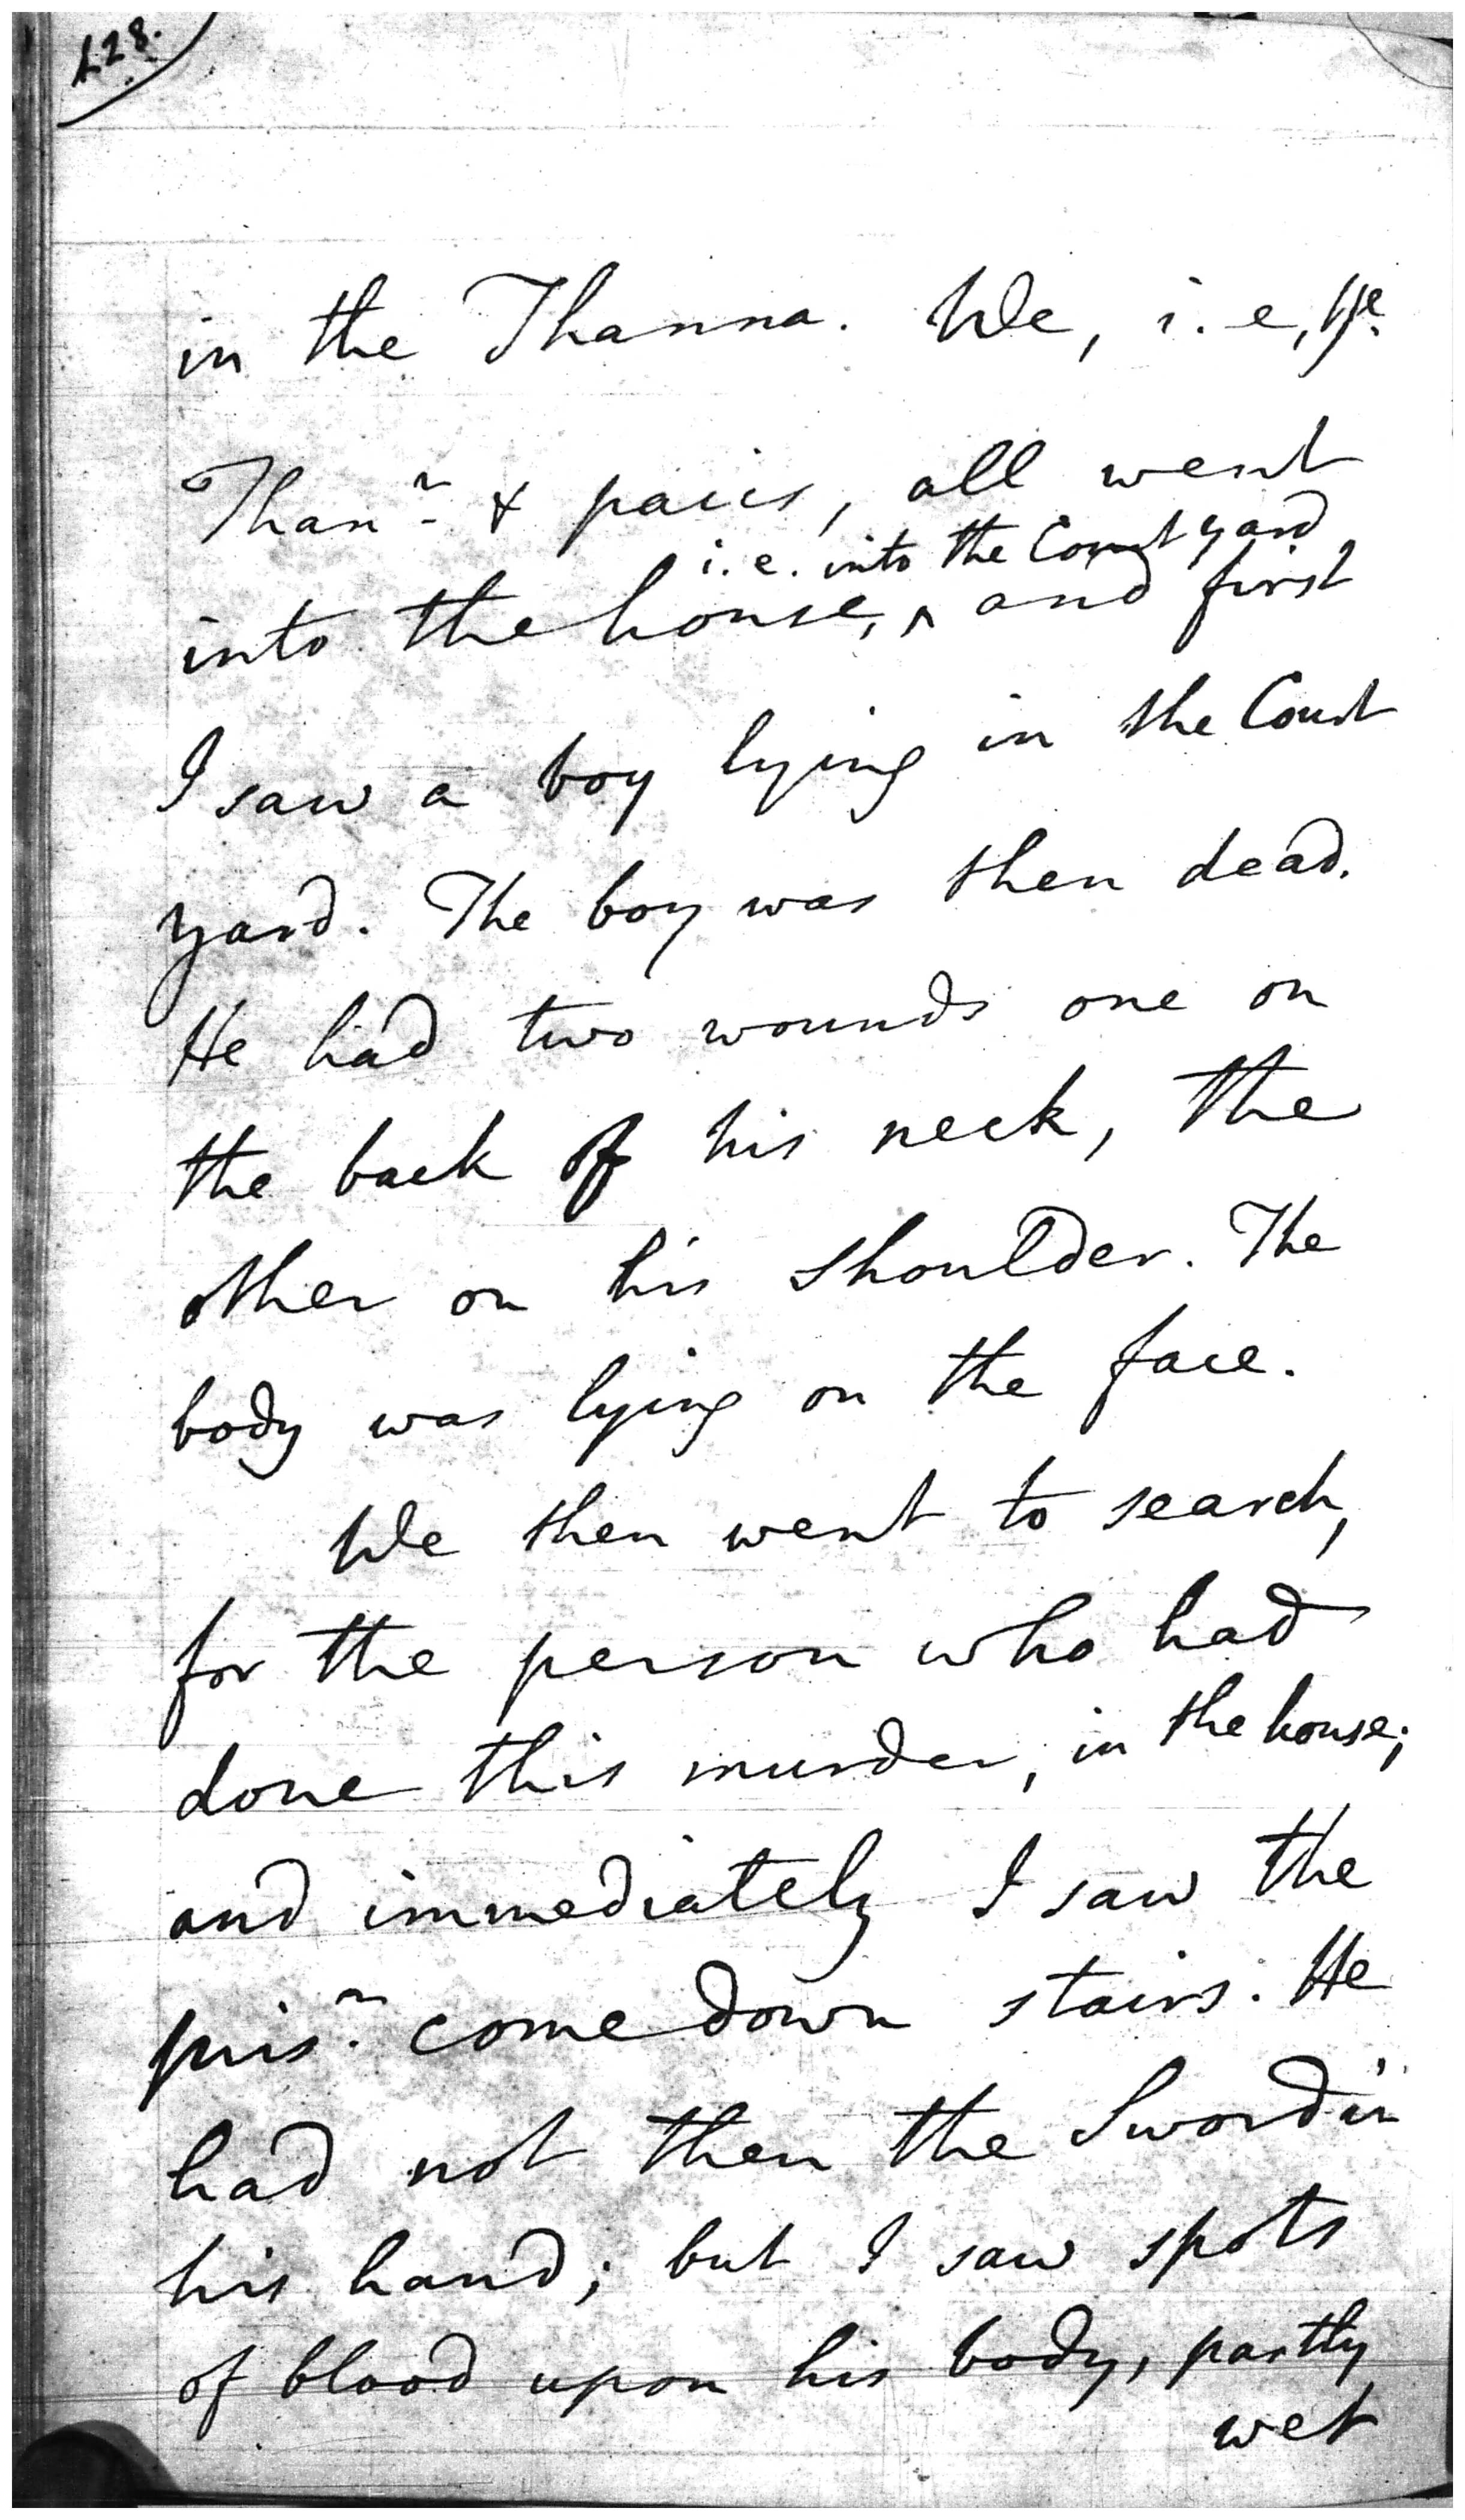 428.
in the Thanna. We, i.e, ye.
Thanr. & paiis, all went
i.e. into the Court yard
into the house, ^ and first
I saw a boy lying in the Court
yard. The boy was then dead.
He had two wounds one on
the back of his neck, the
other on his shoulder. The
body was lying on the face.
We then went to search,
for the person who had
done this murder, in the house;
and immediately I saw the
prisr. come down stairs. He
had not then the Sword in
his hand; but I saw spots
of blood upon his body, partly
wet